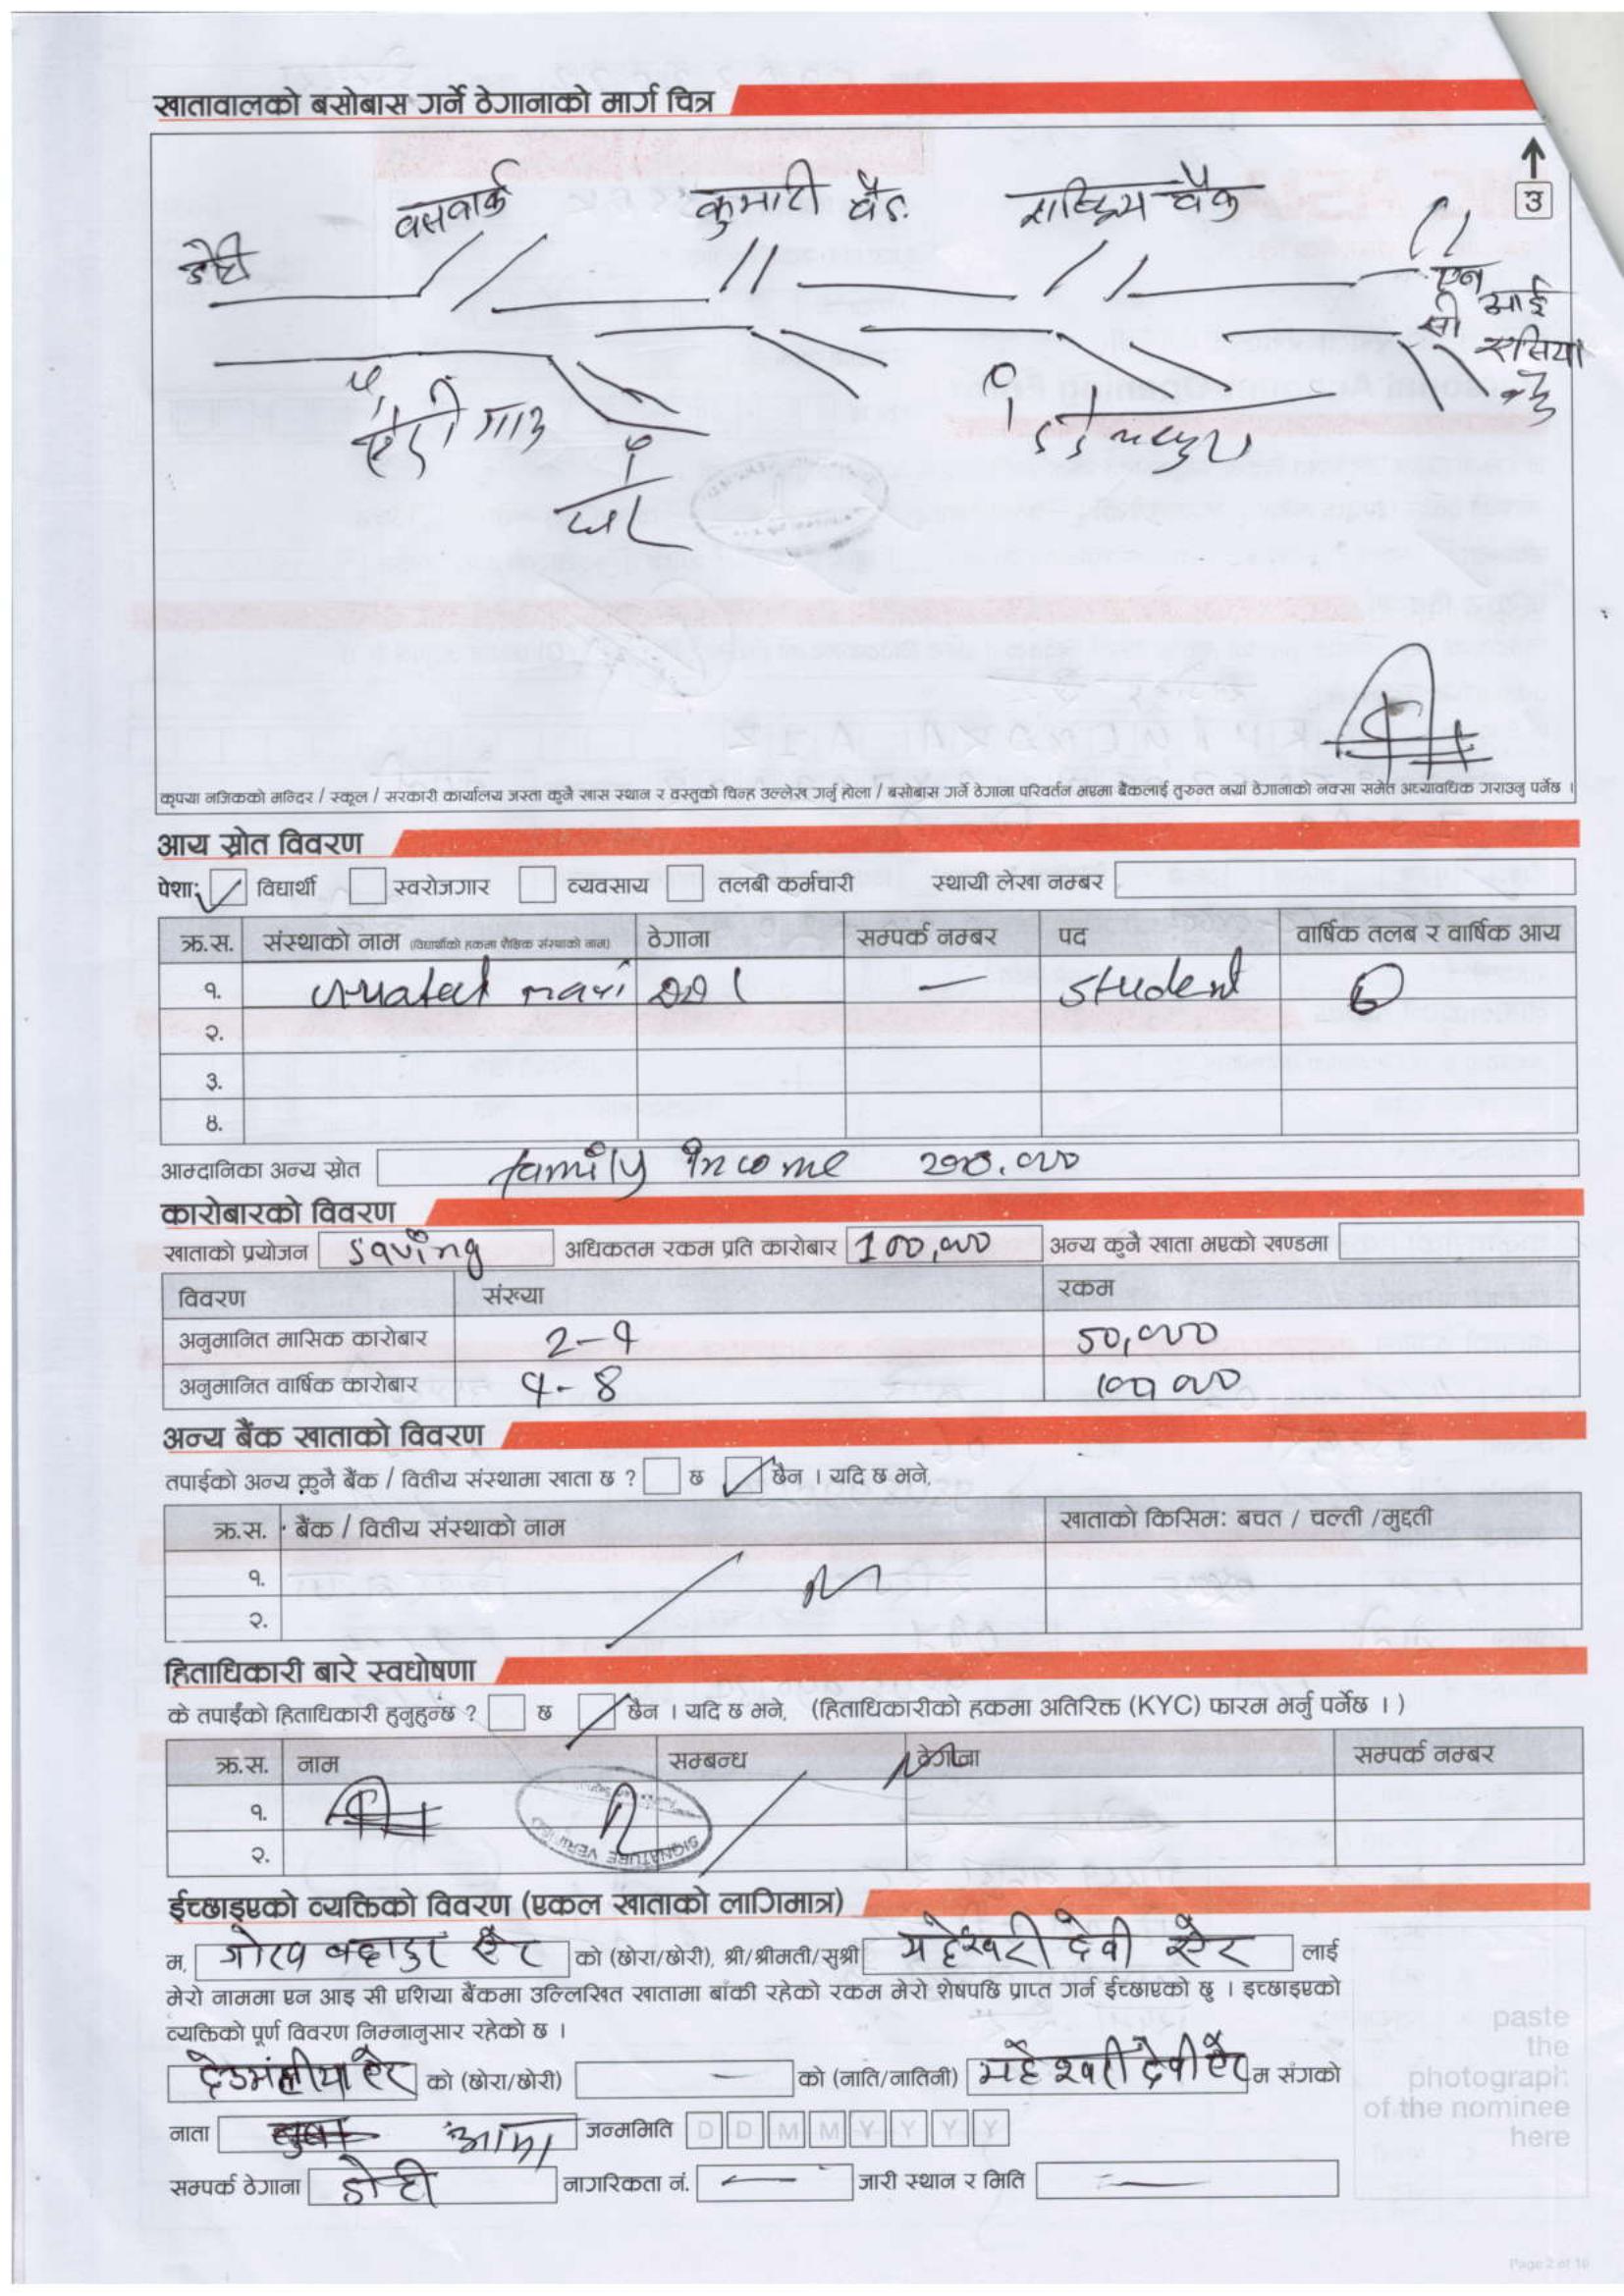 खातावालको बसोबास गर्ने ठेगानाको मार्ग चित्र
उ
कुमारी बैंक
राष्ट्रिय बैंक
डोटी
एन
आई
सी
एसिया
बैंक
घर
कृपया नजिकको मन्दिर / स्कूल / सरकारी कार्यालय जस्ता कुनै खास स्थान र वस्तुको चिन्ह उल्लेख गर्नु होला / बसोबास गर्ने ठेगाना परिवर्तन भएमा बैंकलाई तुरुन्त नयाँ ठेगानाको नक्सा समेत अध्यावधिक गराउनु पर्नेछ ।
आय स्रोत विवरण
पेशा: विद्यार्थी स्वरोजगार व्यवसाय तलबी कर्मचारी स्थायी लेखा नम्बर
क्र.स. संस्थाको नाम (विद्यार्थीको हकमा शैक्षिक संस्थाको नाम) ठेगाना सम्पर्क नम्बर पद वार्षिक तलब र वार्षिक आय
१. – student
२.
३.
४.
आम्दानिका अन्य स्रोत family income 200,000
कारोबारको विवरण
खाताको प्रयोजन saving अधिकतम रकम प्रति कारोबार 100,000 अन्य कुनै खाता भएको खण्डमा
विवरण संख्या रकम
अनुमानित मासिक कारोबार 2-4 50,000
अनुमानित वार्षिक कारोबार 4-8 100,000
अन्य बैंक खाताको विवरण
तपाईको अन्य कुनै बैंक / वित्तीय संस्थामा खाता छ ? छ छैन । यदि छ भने,
क्र.स. बैंक / वित्तीय संस्थाको नाम खाताको किसिम: बचत / चल्ती /मुद्दती
१.
२.
हिताधिकारी बारे स्वघोषणा
के तपाईंको हिताधिकारी हुनुहुन्छ ? छ छैन । यदि छ भने, (हिताधिकारीको हकमा अतिरिक्त (KYC) फारम भर्नु पर्नेछ । )
क्र.स. नाम सम्बन्ध ठेगाना सम्पर्क नम्बर
१.
SIGNATURE VERIFIED
२.
ईच्छाइएको व्यक्तिको विवरण (एकल खाताको लागिमात्र)
म, गोरख बहादुर ऐर को (छोरा/छोरी), श्री/श्रीमती/सुश्री महेश्वरी देवी ऐर लाई
मेरो नाममा एन आइ सी एशिया बैंकमा उल्लिखित खातामा बांकी रहेको रकम मेरो शेषपछि प्राप्त गर्न ईच्छाएको छु । इच्छाइएको
व्यक्तिको पूर्ण विवरण निम्नानुसार रहेको छ ।
ऐर को (छोरा/छोरी) – को (नाति/नातिनी) महेश्वरी देवी ऐर म संगको
नाता आमा जन्ममिति D D M M Y Y Y Y
सम्पर्क ठेगाना डोटी नागरिकता नं. – जारी स्थान र मिति –
paste
the
photograph
of the nominee
here
Page 2 of 10